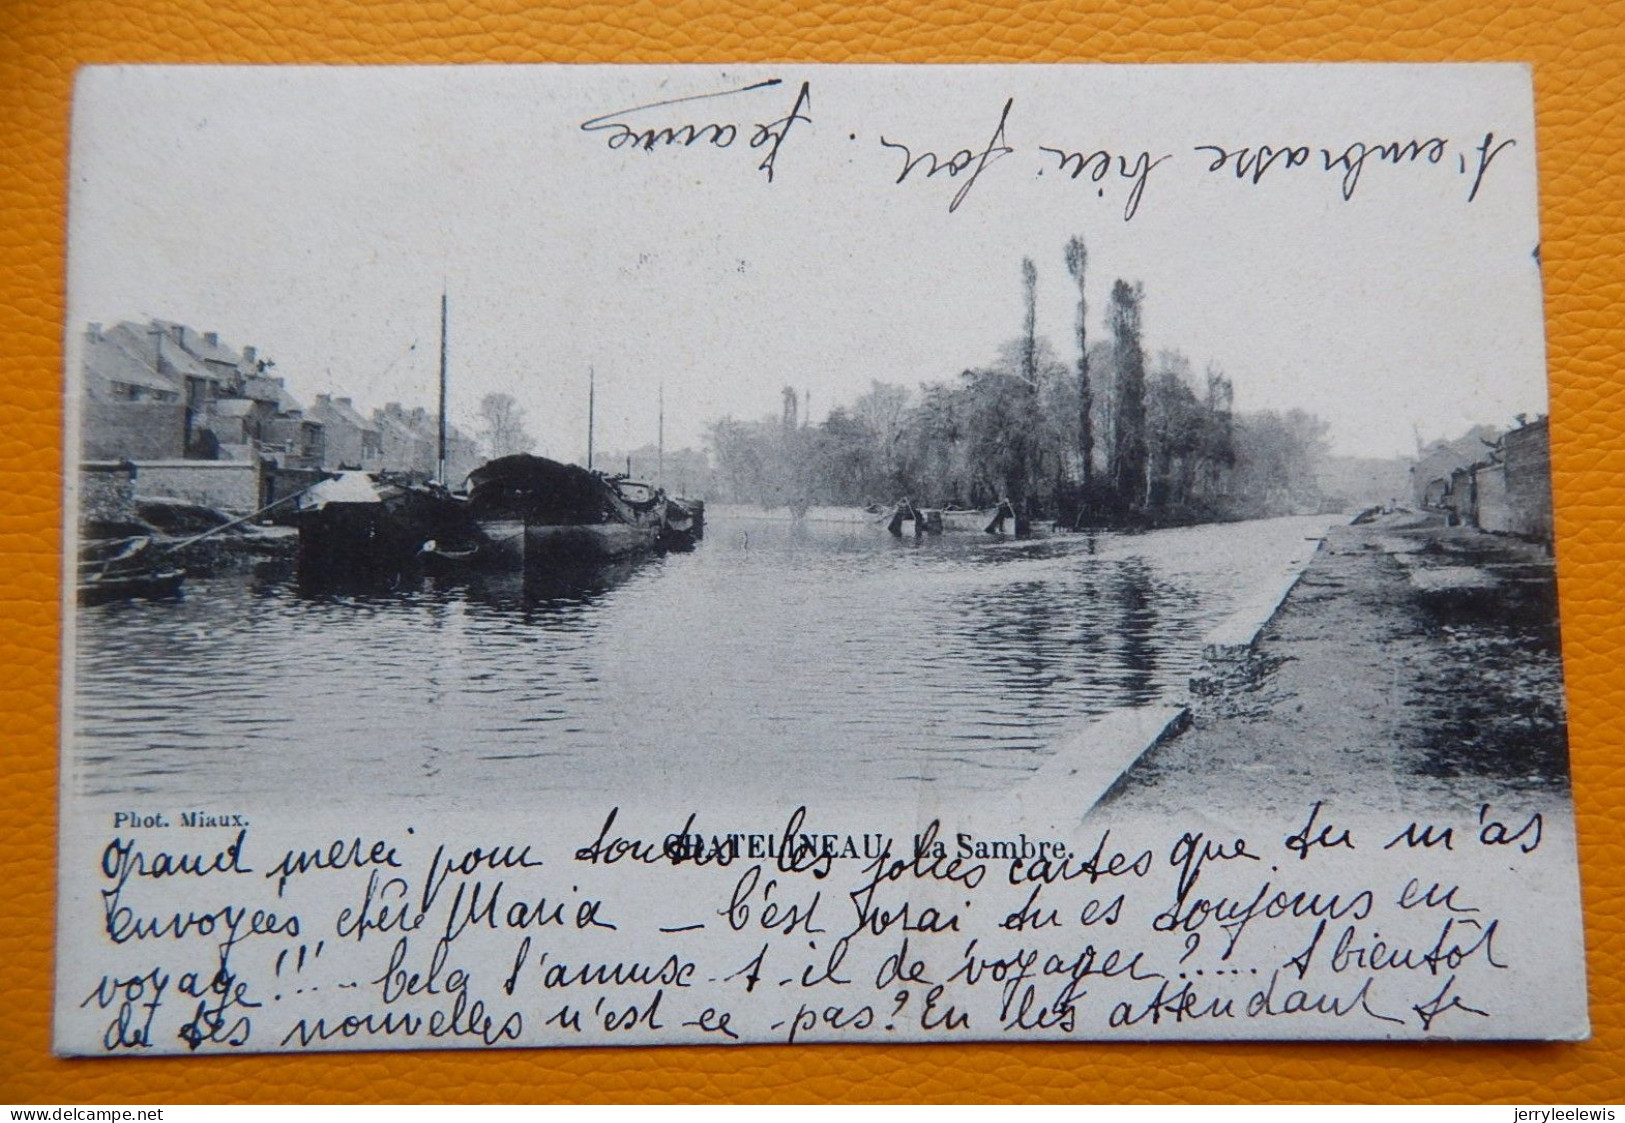 Phot. Miaux.
CHATELINEAU. La Sambre.
Grand merci pour toutes les jolies cartes que tu m'as
envoyées, chère Maria — C'est vrai tu es toujours en
voyage !!!... Cela t'amuse-t-il de voyager ?..... A bientôt
de tes nouvelles n'est-ce-pas ? En les attendant je
t'embrasse bien fort. Jeanne
www.delcampe.net
jerryleelewis